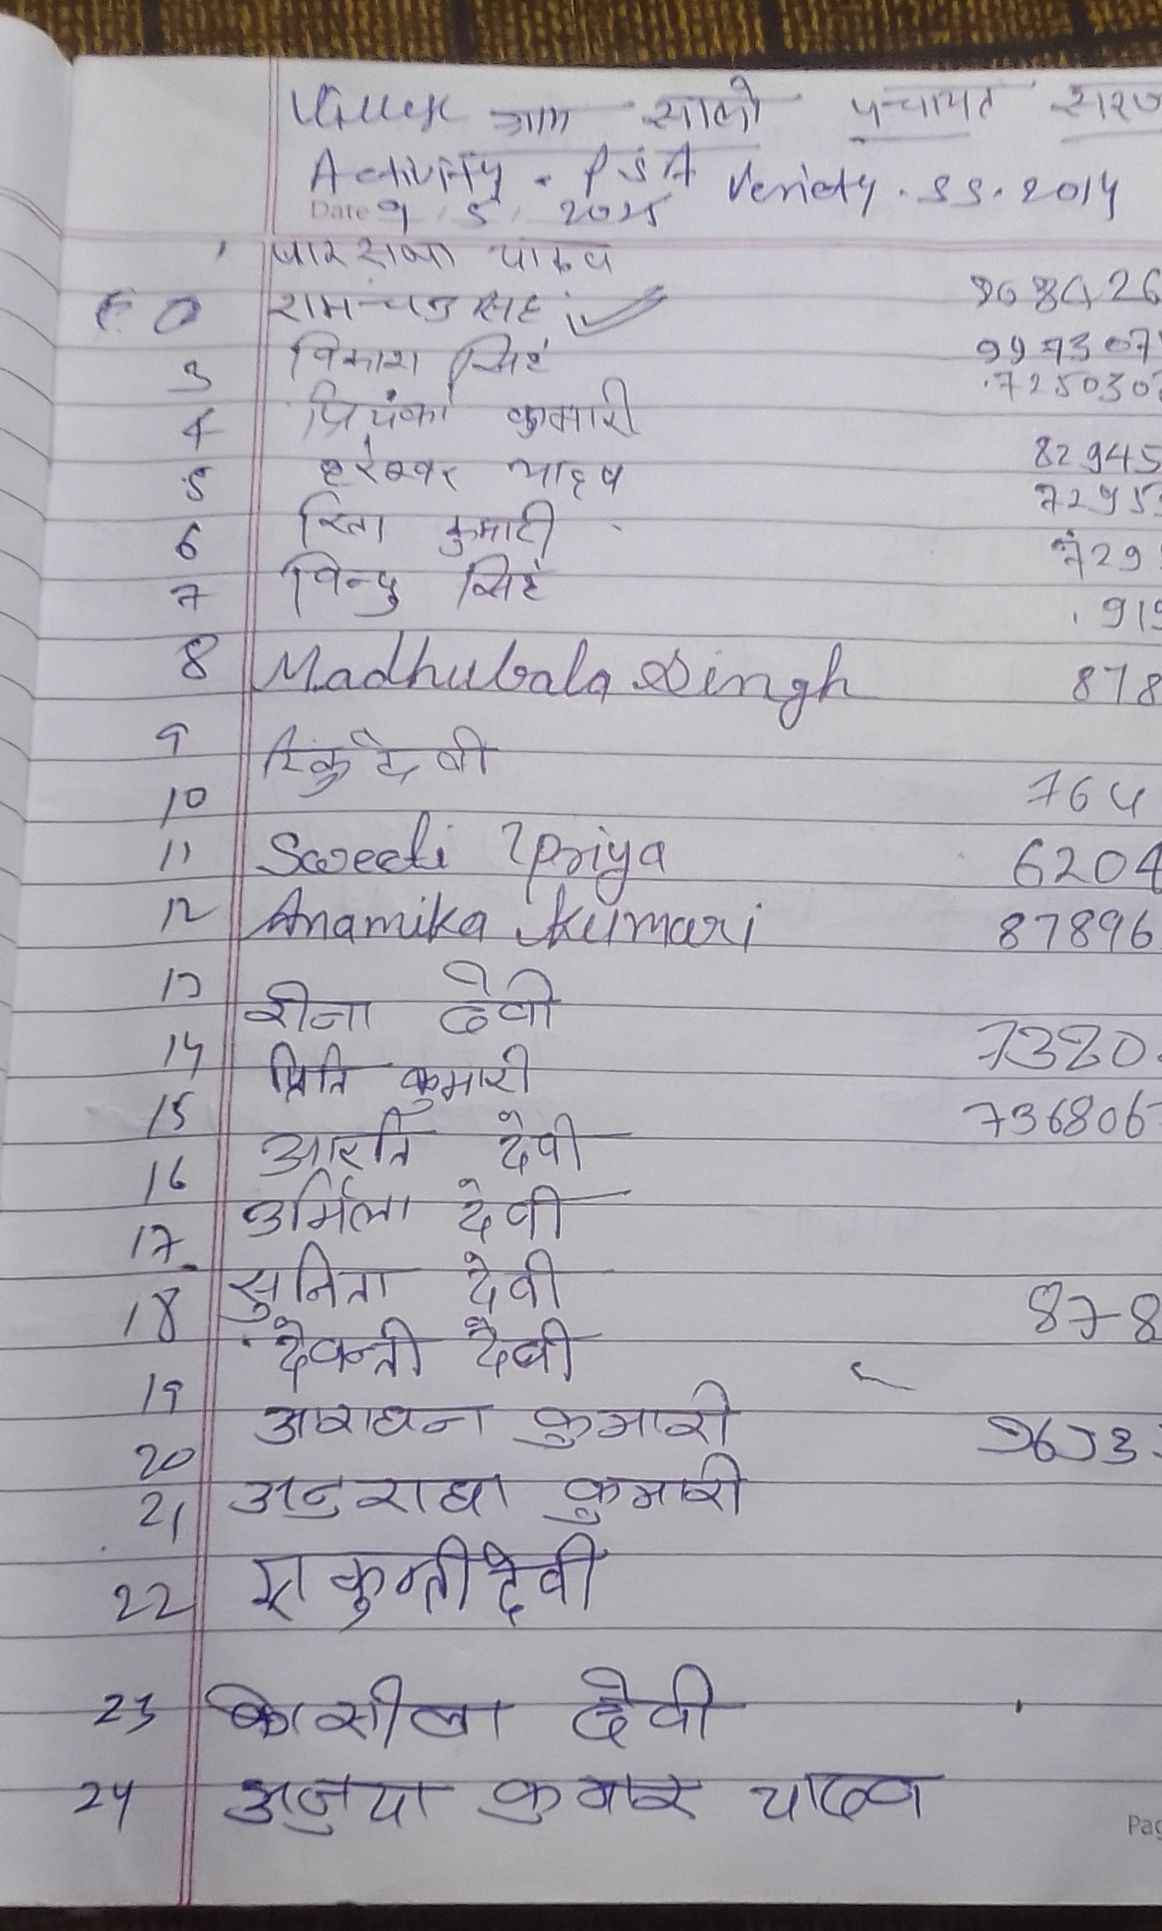 ग्राम सालो पंचायत
Activity . PSA Veriety . SS . 2014
Date 9 / 5 / 2025
यादव
रामचन्द्र सिहं 968426
3 विकाश सिहं 997307
7250303
4 प्रियंका कुमारी
5 हरेश्वर यादव 82945
6 रिता कुमारी 7295
7 विन्दु सिहं 729
919
8 Madhubala Singh 878
9 रिंकु देवी
10 764
11 Sweeti Priya 6204
12 Anamika Kumari 87896
13 रीना देवी
14 प्रिति कुमारी 7320
15 आरति देवी 736806
16 उर्मिला देवी
17 सुनिता देवी
18 देवन्ती देवी 878
19 आराधन कुमारी
20 अनुराधा कुमारी
21
22 सकुन्ती देवी
23 कोसीला देवी
24 अजुया कुमार यादव
Pag